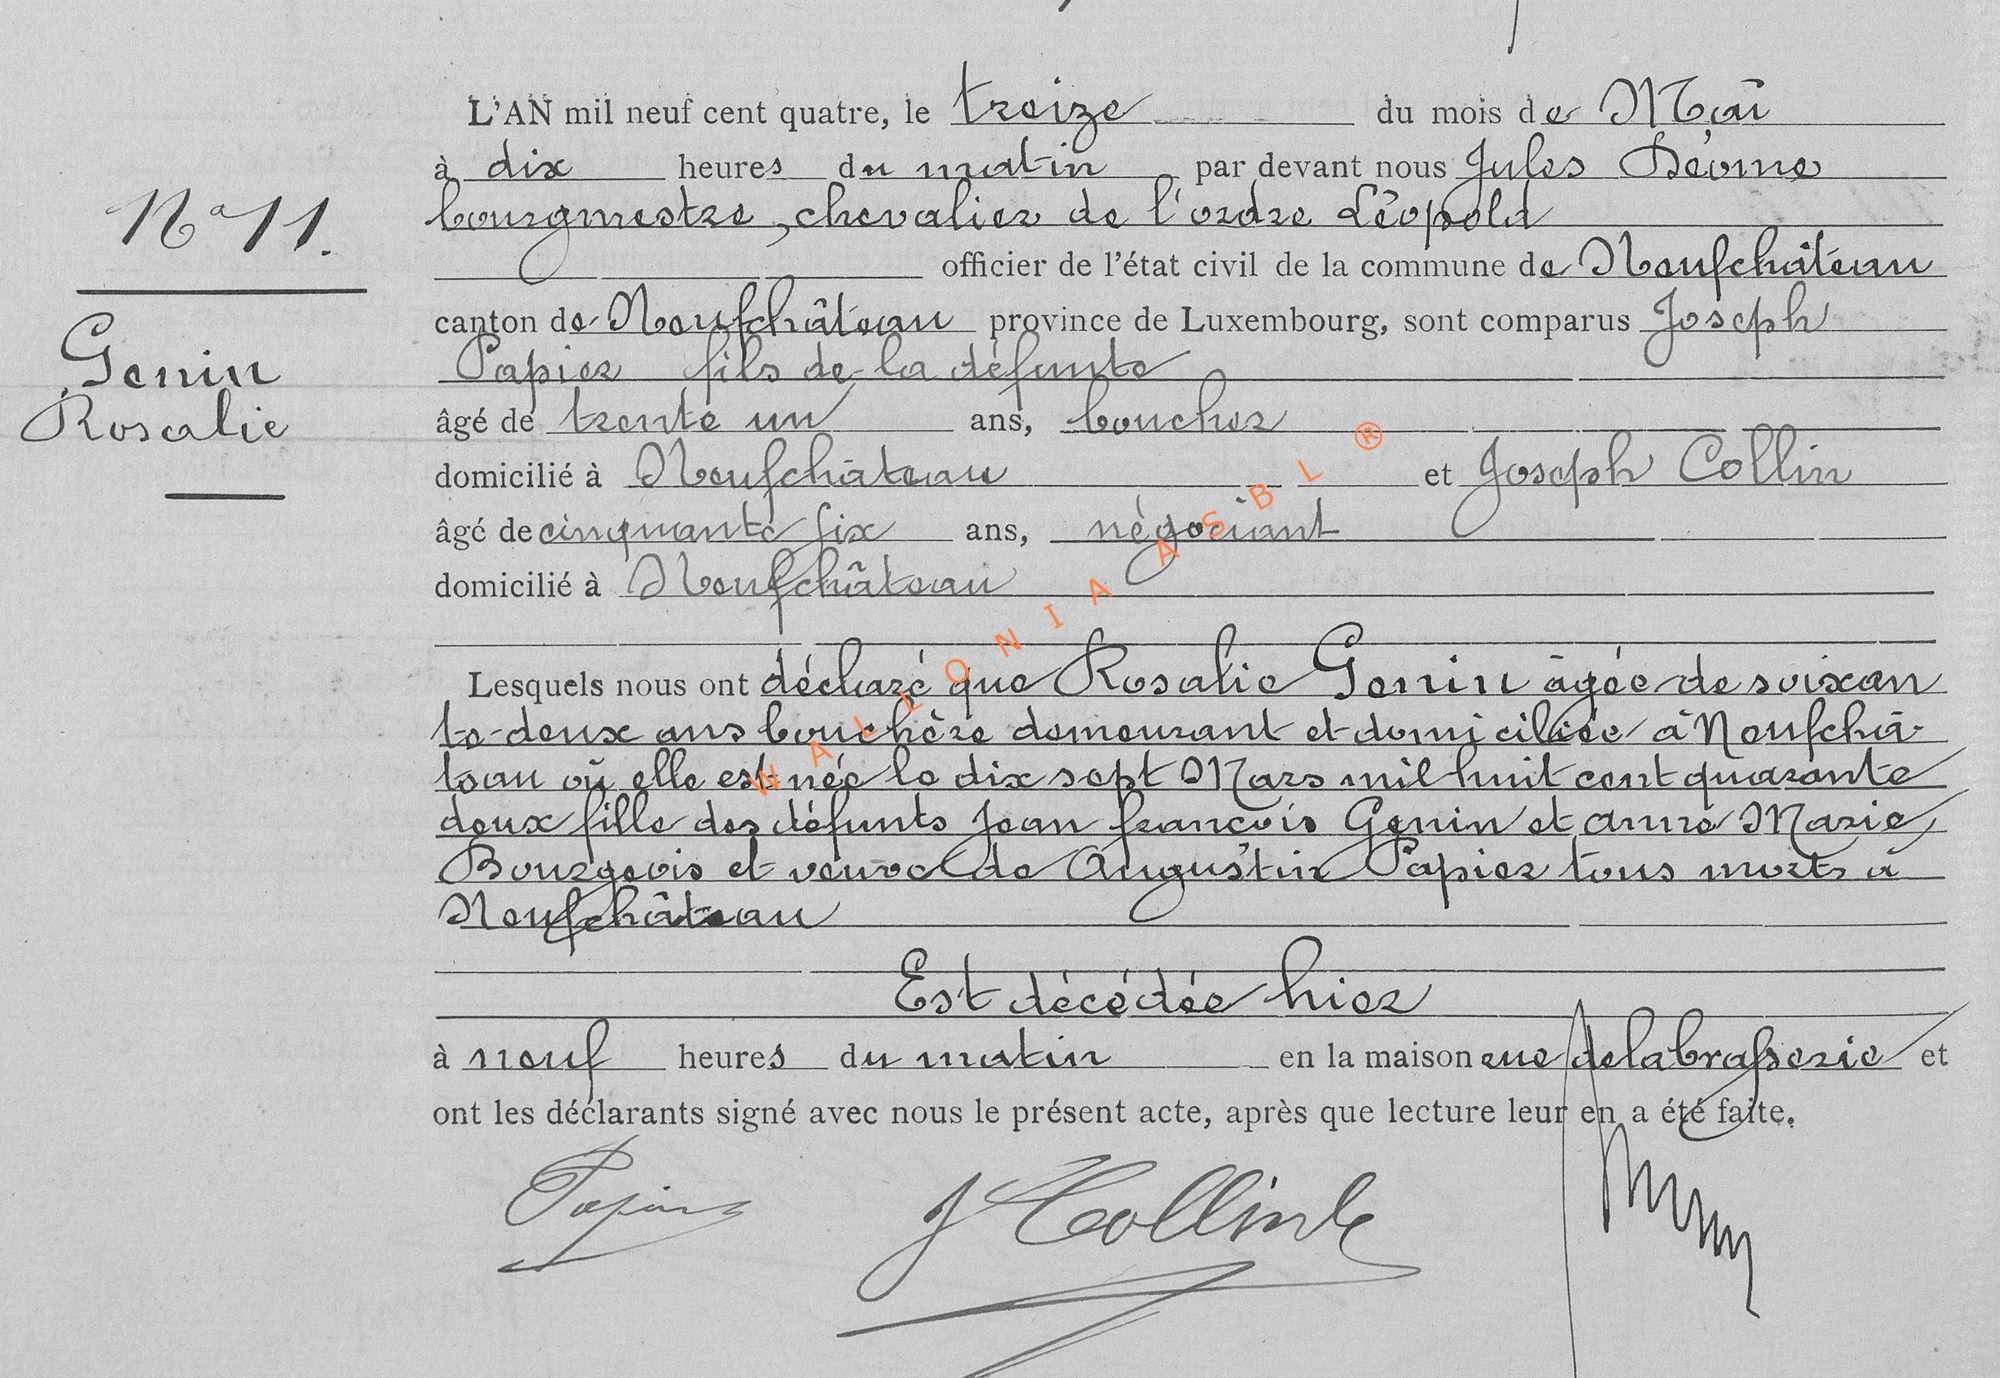 L'AN mil neuf cent quatre, le treize du mois de Mai
à dix heures du matin par devant nous Jules
bourgmestre, chevalier de l'ordre Léopold
officier de l'état civil de la commune de Neufchâteau
canton de Neufchâteau province de Luxembourg, sont comparus Joseph
Papier fils de la défunte
âgé de trente un ans, boucher
domicilié à Neufchâteau et Joseph Collin
âgé de cinquante six ans, négociant
domicilié à Neufchâteau
Lesquels nous ont déclaré que Rosalie Genin âgée de soixan
te-deux ans bouchère demeurant et domiciliée à Neufchâ-
teau où elle est née le dix sept Mars mil huit cent quarante
deux fille des défunts Jean françois Genin et anne Marie
Bourgeois et veuve de Augustin Papier tous morts à
Neufchâteau
Est décédée hier
à neuf heures du matin en la maison rue de la brasserie et
ont les déclarants signé avec nous le présent acte, après que lecture leur en a été faite.
Papier J Collin
No 11.
Genin
Rosalie
WALLONIA ASBL ®